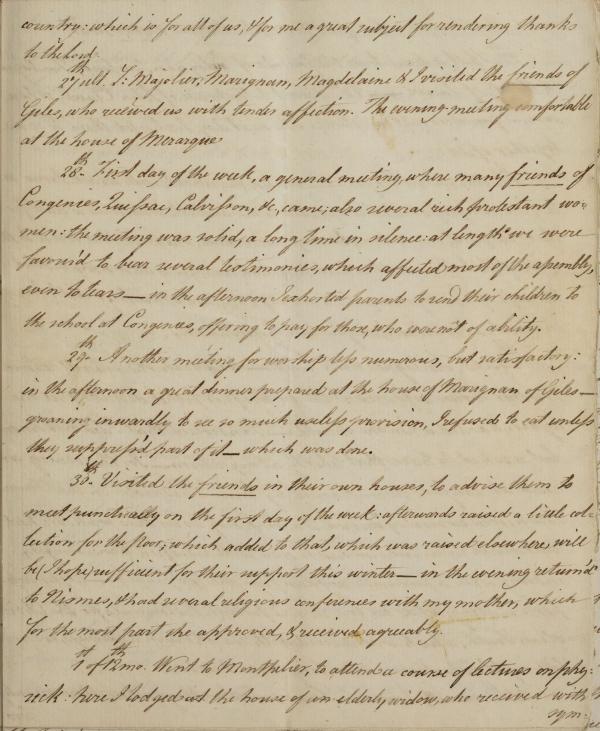 country: which is for all of us, & for me a great subject for rendering thanks
to the Lord.
27th ult. L: Majolier, Marignan, Magdelaine & I visited the friends of
Giles, who received us with tender affection. The evening-meeting comfortable
at the house of Merargue
28th- First day of the week, a general meeting, where many friends of
Congenies, Quissac, Calvisson, &c, came; also several rich protestant wo-
men: the meeting was solid, a long time in silence: at length we were
favour'd to hear several testimonies, which affected most of the assembly,
even to tears — in the afternoon I exhorted parents to send their children to
the school at Congenies, offering to pay for those, who were not of ability.
29th- Another meeting for worship less numerous, but satisfactory:
in the afternoon a great dinner prepared at the house of Marignan of Giles —
groaning inwardly to see so much useless provision, I refused to eat unless
they suppress'd part of it — which was done.
30th- Visited the friends in their own houses, to advise them to
meet punctually on the first day of the week: afterwards raised a little col-
lection for the poor; which added to that, which was raised elsewhere, will
be (I hope) sufficient for their support this winter — in the evening return'd
to Nismes, & had several religious conferences with my mother, which
for the most part she approved, & received agreeably.
1st of 12th mo. Went to Montpelier, to attend a course of lectures on phy-
sick: here I lodged at the house of an elderly widow, who received with
sym-